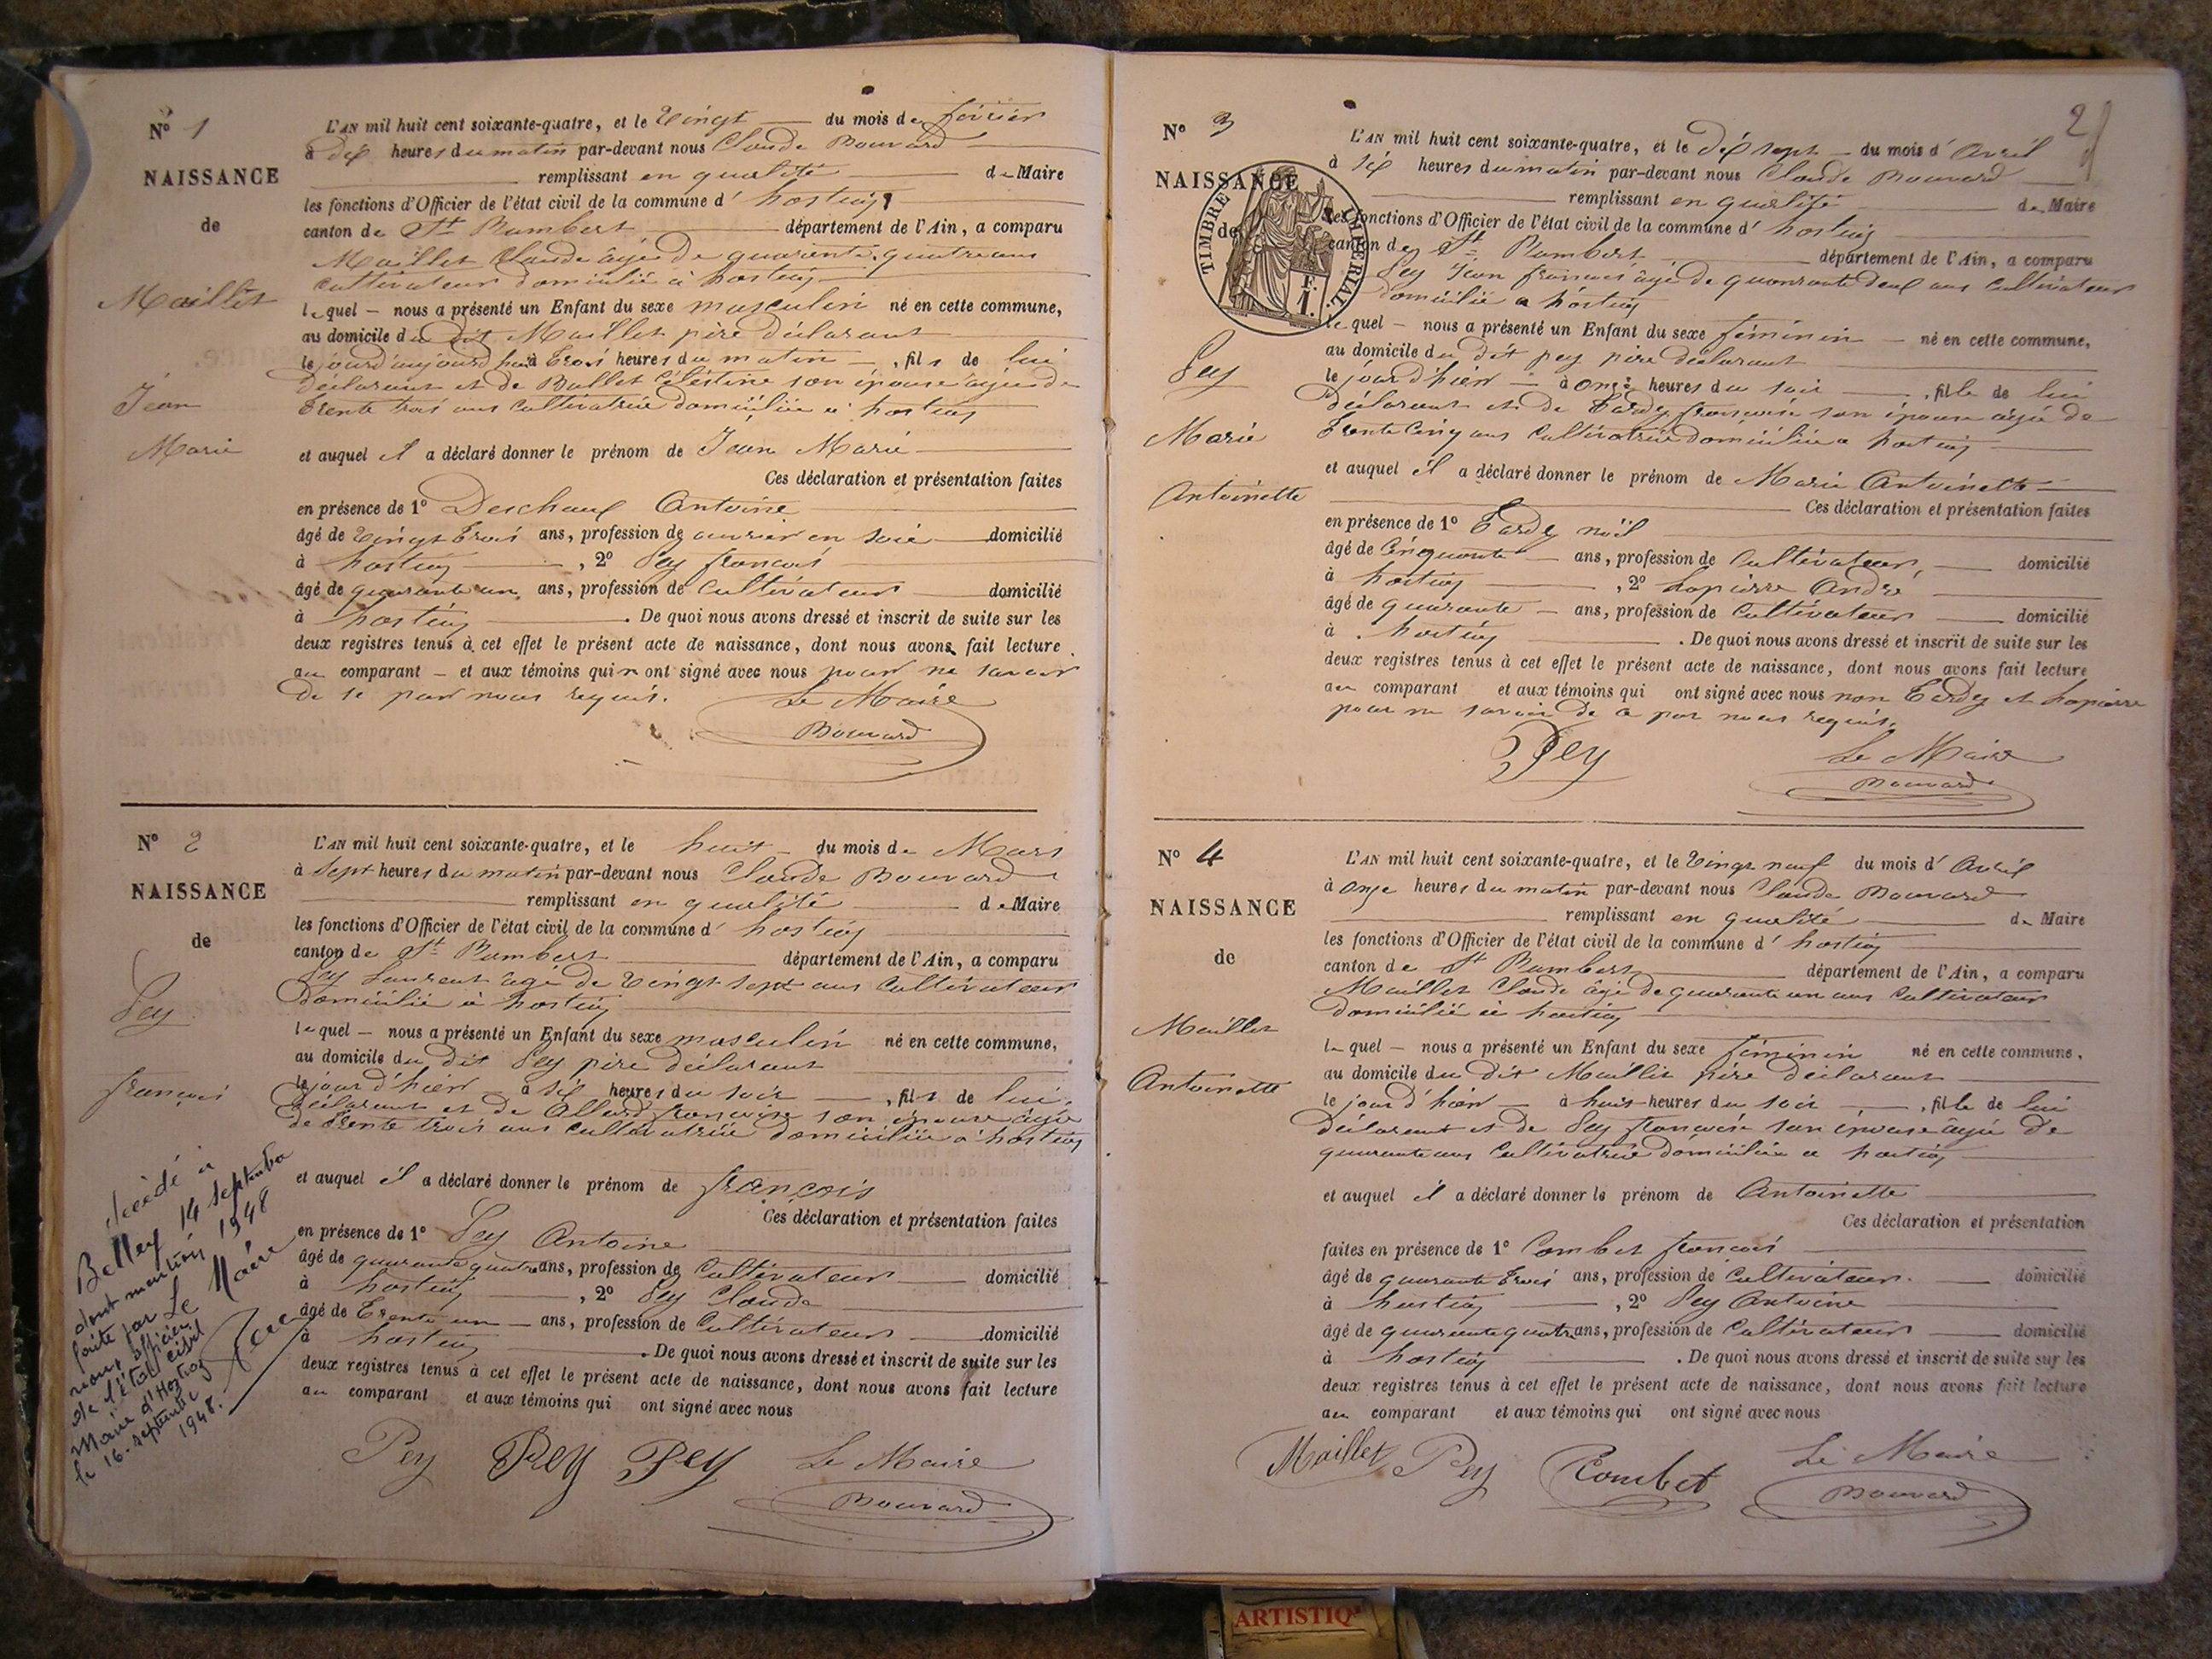 N° 1
NAISSANCE
de
Maillet
Jean
Marie
L'AN mil huit cent soixante-quatre, et le vingt du mois de février
à dix heures du matin par-devant nous Claude Bouvard
remplissant en qualité de Maire
les fonctions d'Officier de l'état civil de la commune d' hostiaz
canton de St Rambert département de l'Ain, a comparu
Maillet Claude âgé de quarante quatre ans
cultivateur domicilié à hostiaz
lequel nous a présenté un Enfant du sexe masculin né en cette commune,
au domicile du dit Maillet père déclarant
le jourd'aujourd'hui à trois heures du matin, fils de lui
déclarant et de Ballet Célestine son épouse âgée de
trente trois ans cultivatrice domiciliée à hostiaz
et auquel il a déclaré donner le prénom de Jean Marie
Ces déclaration et présentation faites
en présence de 1° Deschaux Antoine
âgé de vingt trois ans, profession de ouvrier en soie domicilié
à hostiaz, 2° Pey françois
âgé de quarante un ans, profession de cultivateur domicilié
à hostiaz. De quoi nous avons dressé et inscrit de suite sur les
deux registres tenus à cet effet le présent acte de naissance, dont nous avons fait lecture
au comparant et aux témoins qui n ont signé avec nous pour ne savoir
de ce par nous requis.
Le Maire
Bouvard
N° 2
NAISSANCE
de
Pey
françois
décédé à
Belley 14 septembre
1948
dont mention
faite par Le Maire
nous, officier
de l'État civil
Mairie d'Hostiaz
le 16 septembre
1948.
L'AN mil huit cent soixante-quatre, et le huit du mois de Mars
à sept heures du matin par-devant nous Claude Bouvard
remplissant en qualité de Maire
les fonctions d'Officier de l'état civil de la commune d' hostiaz
canton de St Rambert département de l'Ain, a comparu
Pey Laurent âgé de vingt sept ans cultivateur
domicilié à hostiaz
lequel nous a présenté un Enfant du sexe masculin né en cette commune,
au domicile du dit Pey père déclarant
le jour d'hier à six heures du soir, fils de lui
déclarant et de Allard françoise son épouse âgée
de trente trois ans cultivatrice domiciliée à hostiaz
et auquel il a déclaré donner le prénom de françois
Ces déclaration et présentation faites
en présence de 1° Pey Antoine
âgé de quarante quatre ans, profession de cultivateur domicilié
à hostiaz, 2° Pey Claude
âgé de trente un ans, profession de cultivateur domicilié
à hostiaz. De quoi nous avons dressé et inscrit de suite sur les
deux registres tenus à cet effet le présent acte de naissance, dont nous avons fait lecture
au comparant et aux témoins qui ont signé avec nous
Pey Pey Pey Le Maire
Bouvard
2
N° 3
NAISSANCE
de
TIMBRE IMPÉRIAL
1 F.
Pey
Marie
Antoinette
L'AN mil huit cent soixante-quatre, et le dix sept du mois d' Avril
à six heures du matin par-devant nous Claude Bouvard
remplissant en qualité de Maire
les fonctions d'Officier de l'état civil de la commune d' hostiaz
canton de St Rambert département de l'Ain, a comparu
Pey Jean françois âgé de quarante deux ans cultivateur
domicilié à hostiaz
lequel nous a présenté un Enfant du sexe féminin né en cette commune,
au domicile du dit pey père déclarant
le jour d'hier à onze heures du soir, fille de lui
déclarant et de Tardy françoise son épouse âgée de
trente cinq ans cultivatrice domiciliée a hostiaz
et auquel il a déclaré donner le prénom de Marie Antoinette
Ces déclaration et présentation faites
en présence de 1° Tardy noël
âgé de cinquante ans, profession de cultivateur domicilié
à hostiaz, 2° Lapierre André
âgé de quarante ans, profession de cultivateur domicilié
à hostiaz. De quoi nous avons dressé et inscrit de suite sur les
deux registres tenus à cet effet le présent acte de naissance, dont nous avons fait lecture
au comparant et aux témoins qui ont signé avec nous non Tardy et Lapierre
pour ne savoir de ce par nous requis.
Pey Le Maire
Bouvard
N° 4
NAISSANCE
de
Maillet
Antoinette
L'AN mil huit cent soixante-quatre, et le vingt neuf du mois d' Avril
à onze heures du matin par-devant nous Claude Bouvard
remplissant en qualité de Maire
les fonctions d'Officier de l'état civil de la commune d' hostiaz
canton de St Rambert département de l'Ain, a comparu
Maillet Claude âgé de quarante un ans cultivateur
domicilié à hostiaz
lequel nous a présenté un Enfant du sexe féminin né en cette commune,
au domicile du dit Maillet père déclarant
le jour d'hier à huit heures du soir, fille de lui
déclarant et de Pey françoise son épouse âgée de
quarante ans cultivatrice domiciliée a hostiaz
et auquel il a déclaré donner le prénom de Antoinette
Ces déclaration et présentation
faites en présence de 1° Combet françois
âgé de quarante trois ans, profession de cultivateur domicilié
à hostiaz, 2° Pey Antoine
âgé de quarante quatre ans, profession de cultivateur domicilié
à hostiaz. De quoi nous avons dressé et inscrit de suite sur les
deux registres tenus à cet effet le présent acte de naissance, dont nous avons fait lecture
au comparant et aux témoins qui ont signé avec nous
Maillet Pey Combet Le Maire
Bouvard
ARTISTIQ